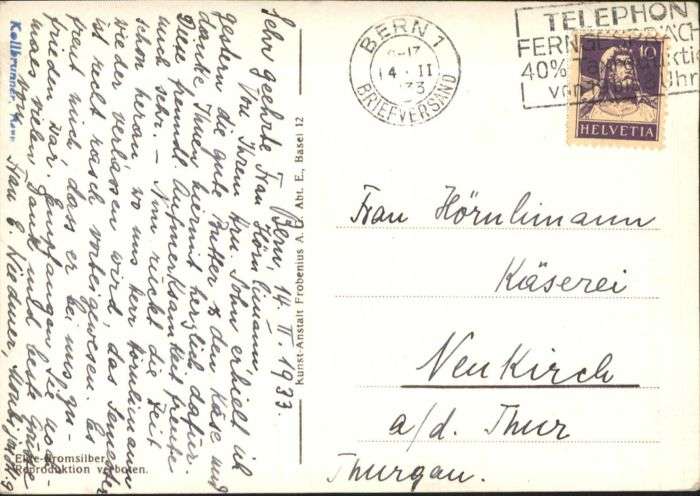 Bern, 14. II. 1933.
Sehr geehrte Frau Hörnlimann
Von Ihrem Hrn. Sohn erhielt ich
gestern die gute Butter & den Käse und
danke Ihnen hiermit herzlich dafür.
Diese freundl. Aufmerksamkeit freute
mich sehr. – Nun rückt die Zeit
schon heran, wo uns Herr Hörnlimann
wieder verlassen wird, das Semester
ist recht rasch vorbeigewesen. Es
freut mich, dass er bei uns zu-
frieden war. Empfangen Sie noch-
mals vielen Dank und beste Grüsse
von Frau E.
Kollbrunner, Bern
Echte Bromsilber.
Reproduktion verboten.
Kunst-Anstalt Frobenius A. G. Abt. E., Basel 12
BERN 1
14. II
33
BRIEFVERSAND
TELEPHON
FERNGESPRÄCH
40%
von Uhr
10
HELVETIA
Frau Hörnlimann
Käserei
Neukirch
a/d. Thur
Thurgau.